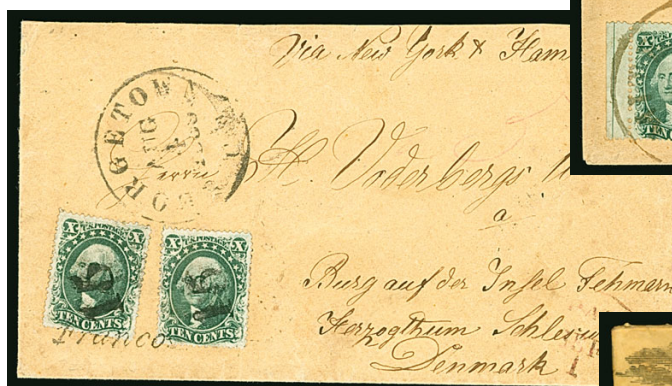 Via New York & Ham
GEORGETOWN
AUG
Herrn H. Voderbergs
a
Burg auf der Insel Fehmarn
Herzogthum Schlesw
Denmark
X U.S. POSTAGE X
TEN CENTS
15
X U.S. POSTAGE X
TEN CENTS
15
Franco
X
TEN CEN